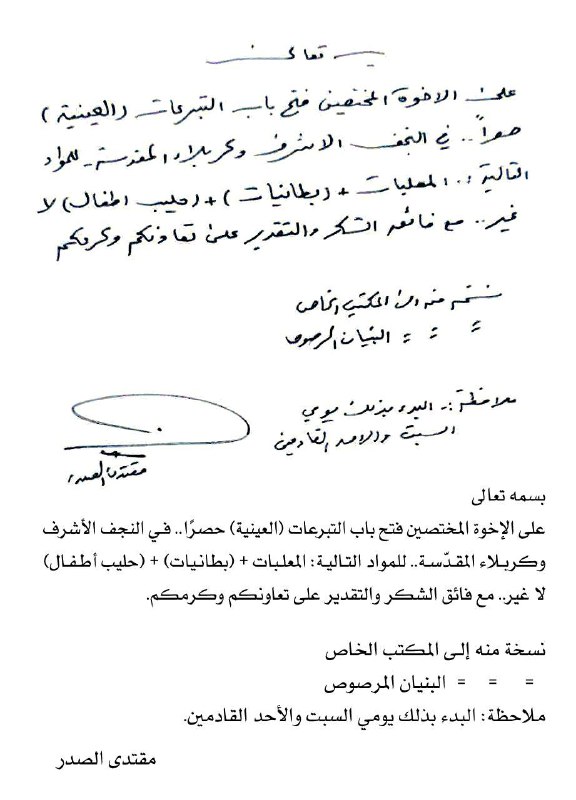 بسمه تعالى
على الاخوة المختصين فتح باب التبرعات (العينية)
حصراً.. في النجف الاشرف وكربلاء المقدسة.. للمواد
التالية:. المعلبات + (بطانيات) + (حليب اطفال) لا
غير.. مع فائق الشكر والتقدير على تعاونكم وكرمكم
نسخة منه الى المكتب الخاص
= = = البنيان المرصوص
ملاحظة:. البدء بذلك يومي
السبت والاحد القادمين
مقتدى الصدر
بسمه تعالى
على الإخوة المختصين فتح باب التبرعات (العينية) حصرًا.. في النجف الأشرف
وكربلاء المقدّسة.. للمواد التالية: المعلبات + (بطانيات) + (حليب أطفال)
لا غير.. مع فائق الشكر والتقدير على تعاونكم وكرمكم.
نسخة منه إلى المكتب الخاص
= = = البنيان المرصوص
ملاحظة: البدء بذلك يومي السبت والأحد القادمين.
مقتدى الصدر